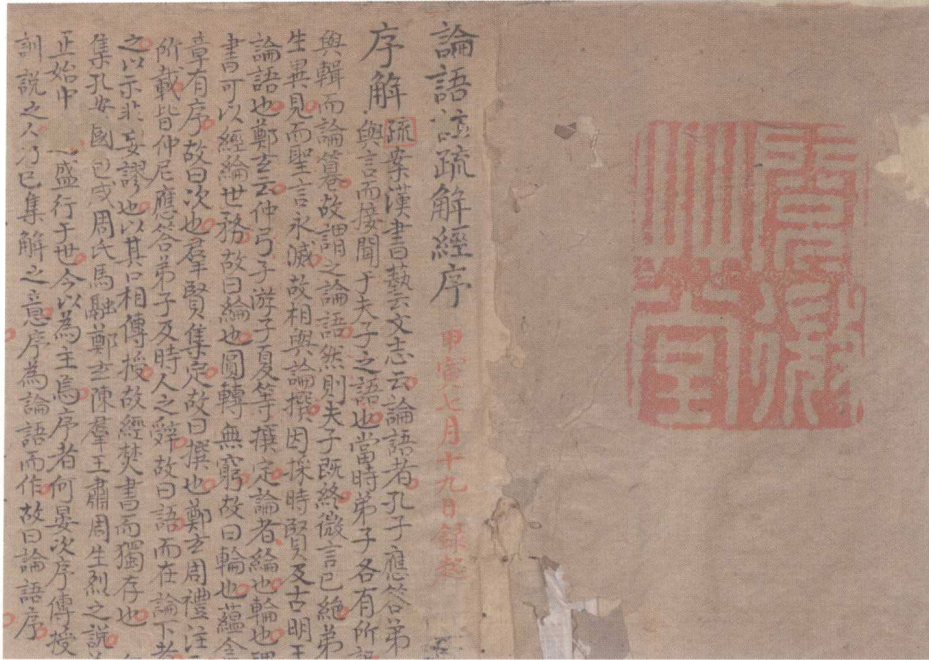 論語註疏解經序 甲寅七月十九日録起
序解 疏案漢書藝云文志云論語者孔子應答弟
與言而接聞于夫子之語也當時弟子各有所記
與輯而論篹故謂之論語然則夫子既終微言已絶弟
生異見而聖言永滅故相與論撰因採時賢及古明王
論語也鄭玄云仲弓子游子夏等撰定論者綸也輪也理
書可以經綸世務故曰綸也圓轉無窮故曰輪也蘊含
章有序故曰次也羣賢集定故曰撰也鄭玄周禮注
所載皆仲尼應答弟子及時人之辭故曰語而在論下者
之以示非妄謬也以其口相傳授故經焚書而獨存也
集孔安國包咸周氏馬融鄭玄陳羣王肅周生烈之說
正始中 盛行于世今以為主焉序者何晏次序傳授
訓說之人乃已集解之意序為論語而作故曰論語序